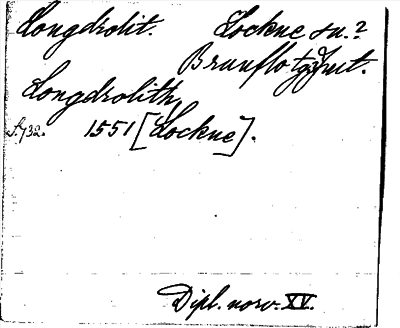 Longdrolit. Lockne sn.?
Brunflo tg, Jmt.
Longdrolith,
S. 732. 1551 [Lockne].
Dipl. norv. XV.